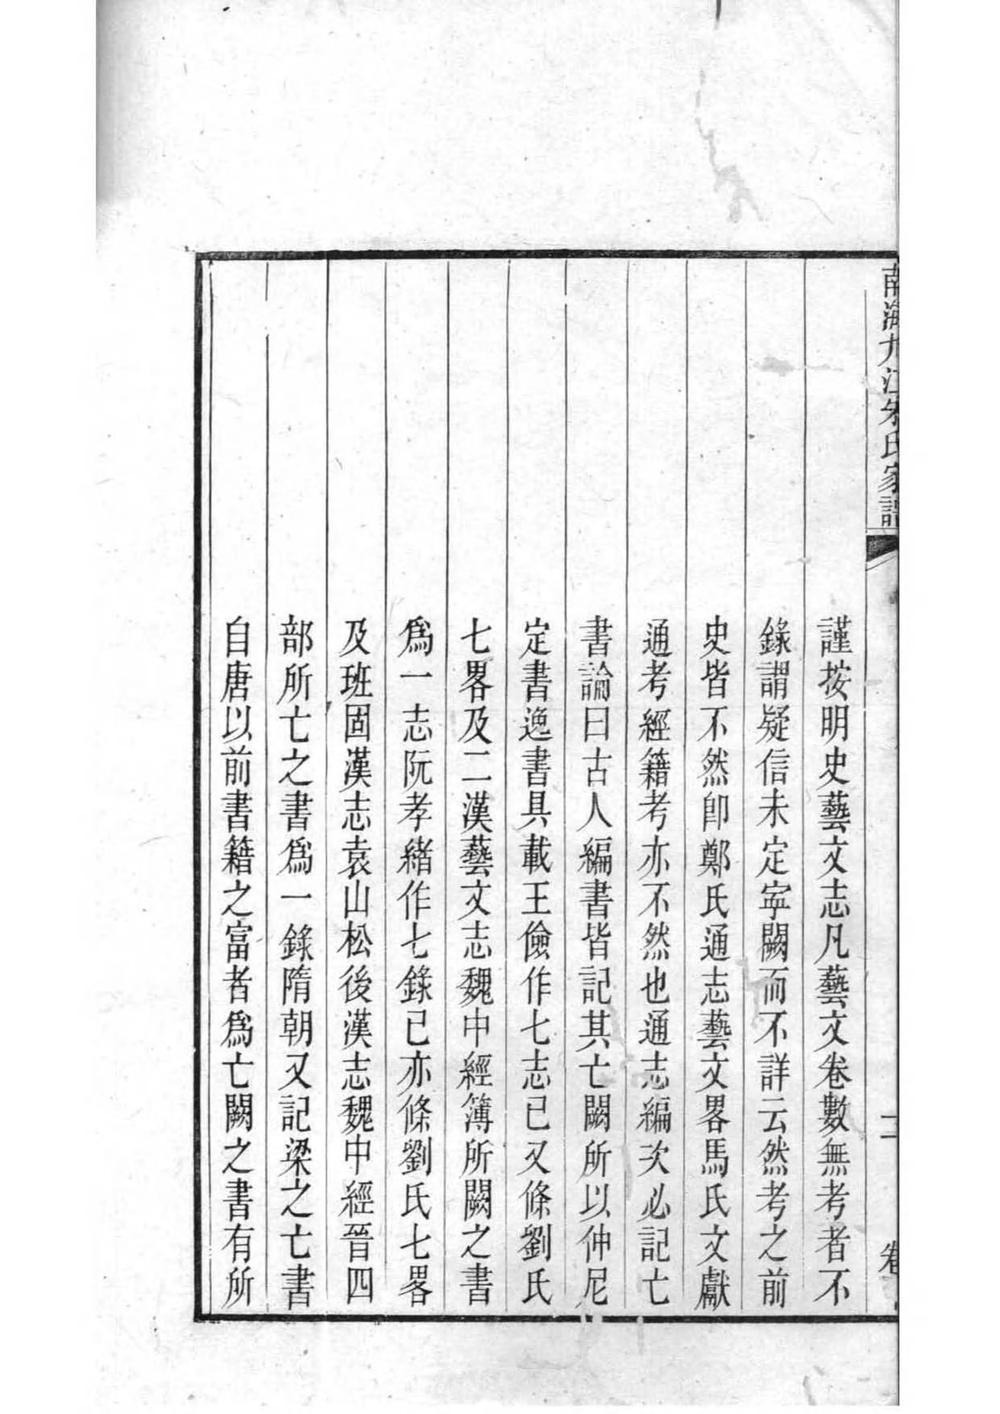 南海九江朱氏家譜
卷
謹按明史藝文志凡藝文卷數無考者不
錄謂疑信未定寜闕而不詳云然考之前
史皆不然卽鄭氏通志藝文畧馬氏文獻
通考經籍考亦不然也通志編次必記亡
書論曰古人編書皆記其亡闕所以仲尼
定書逸書具載王儉作七志已又條劉氏
七畧及二漢藝文志魏中經簿所闕之書
爲一志阮孝緒作七錄已亦條劉氏七畧
及班固漢志袁山松後漢志魏中經晉四
部所亡之書爲一錄隋朝又記梁之亡書
自唐以前書籍之富者爲亡闕之書有所